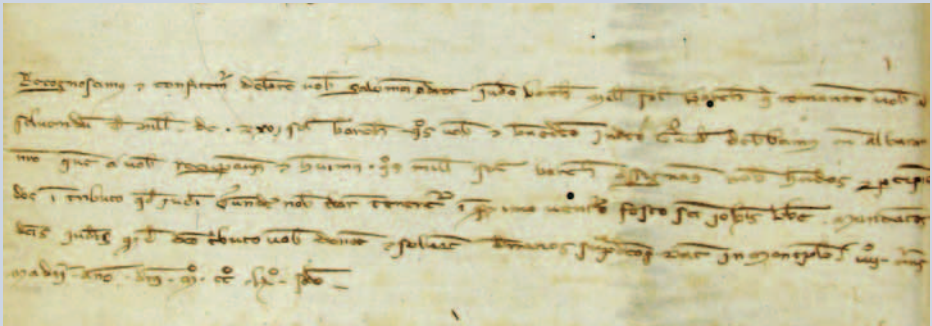 Recognoscimus et confitemur debere vobis Salamoni Adret judeo Barchinone mille solidos Barchinone qui remanent vobis ad
solvendum de mille . de . solidos Barchinone quos vobis et Benedicto judeo Gerunde debebamus cum albarano
nostro quem a vobis recuperamus et habuimus . quos mille solidos Barchinone assignamus vobis habendos et percipiendos
in tributo quod judei Gerunde nobis dare tenentur in primo venturo festo sancti Johannis . Mandantes
dictis judeis quod de dicto tributo vobis donent et solvant denarios supradictos Datum in Montepessulano . iiiiº . 
Madii . anno . domini . Mº . CCº . LXº . secundo